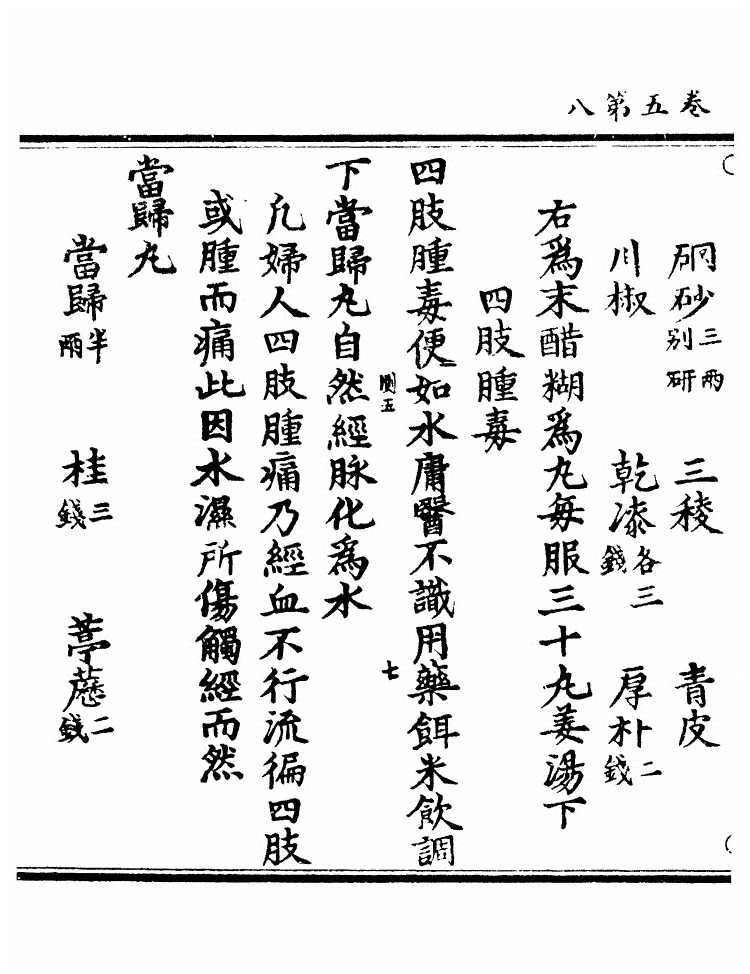 卷五第八
硇砂三兩別研　三稜　青皮
川椒　乾漆各三錢　厚朴二錢
右爲末醋糊爲丸每服三十丸姜湯下
四肢腫毒
四肢腫毒便如水庸醫不識用藥餌米飲調
下當歸丸自然經脉化爲水
凡婦人四肢腫痛乃經血不行流徧四肢
或腫而痛此因水濕所傷觸經而然
當歸丸
當歸半兩　桂三錢　葶藶二錢